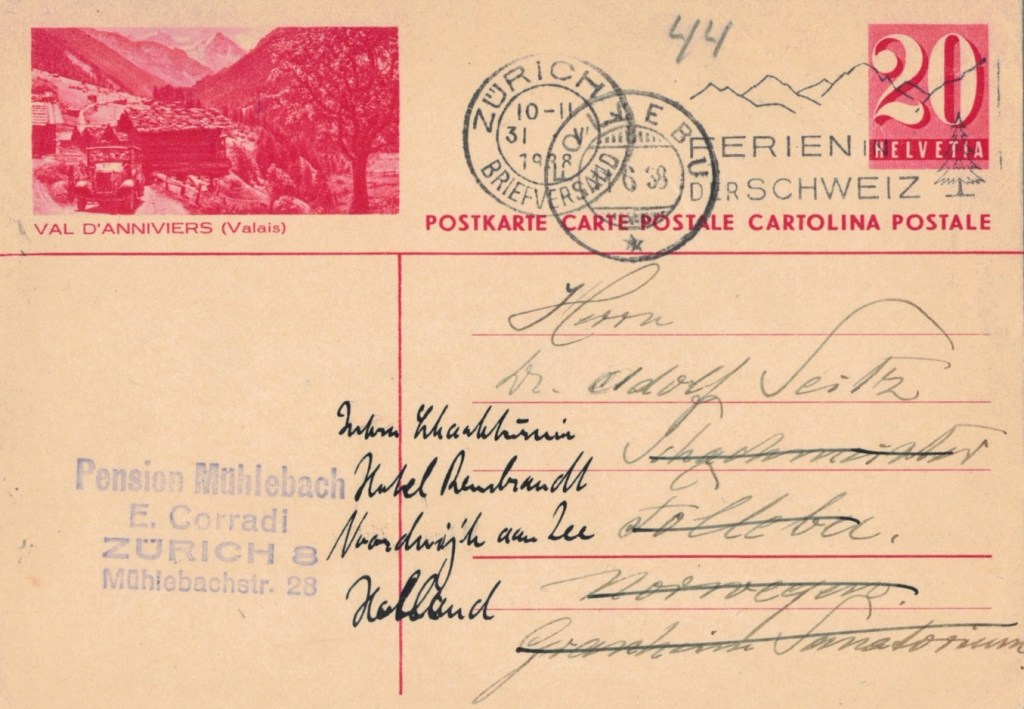 44
20
HELVETIA
VAL D'ANNIVIERS (Valais)
ZÜRICH
10-11
31 V
1938
BRIEFVERSAND
FOLKEBU
6 38
FERIEN IN
DER SCHWEIZ
POSTKARTE CARTE POSTALE CARTOLINA POSTALE
Herrn
Dr. Adolf Seitz
Schachmeister
Folkebu.
Norwegen.
Granheim Sanatorium
Intern Schachturnier
Hotel Rembrandt
Noordwijk aan Zee
Holland
Pension Mühlebach
E. Corradi
ZÜRICH 8
Mühlebachstr. 28